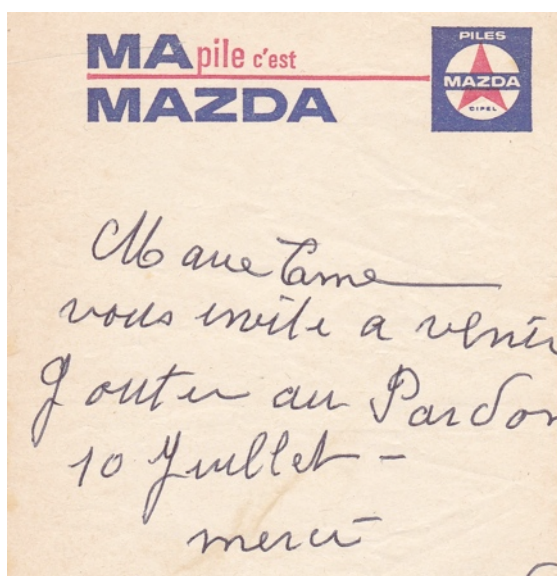 MA pile c'est
MAZDA
PILES
MAZDA
CIPEL
vous invite a venir
Gouter au Pardon
10 Juillet -
merci